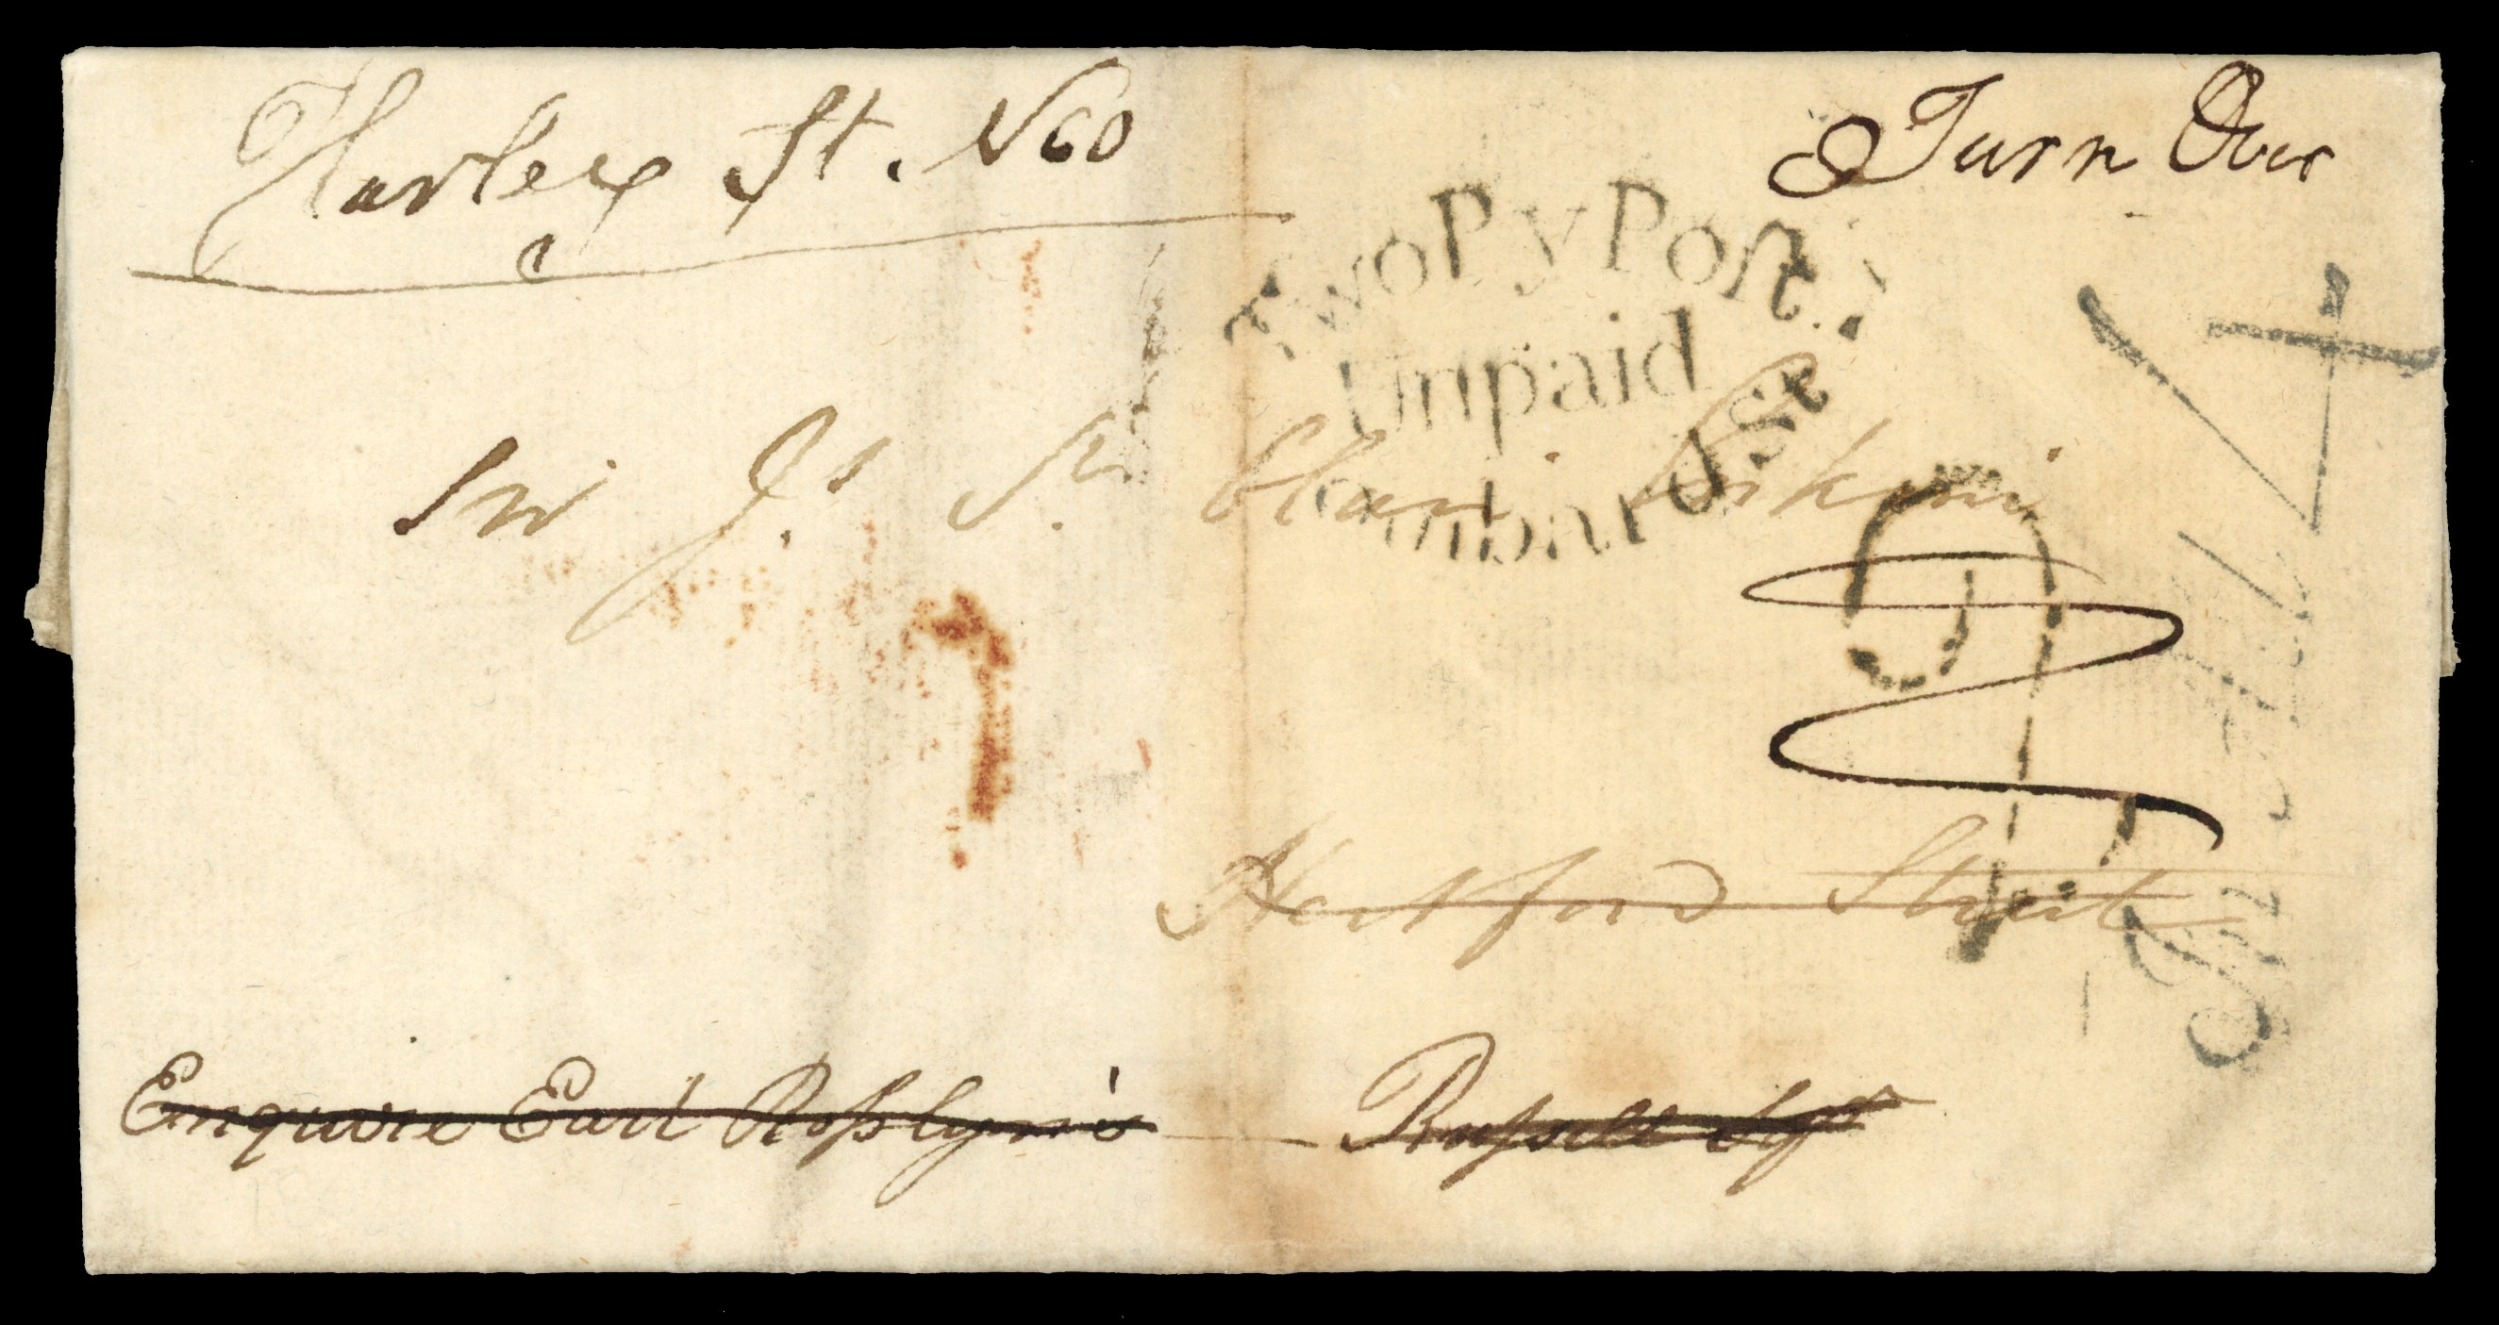 Harley St. No
Turn Over
TwoPyPost
Unpaid
LombardSt
Sir J.s St. Clair Erskine
Hertford Street
Enquire Earl Rosslyn's — Russell Sqr